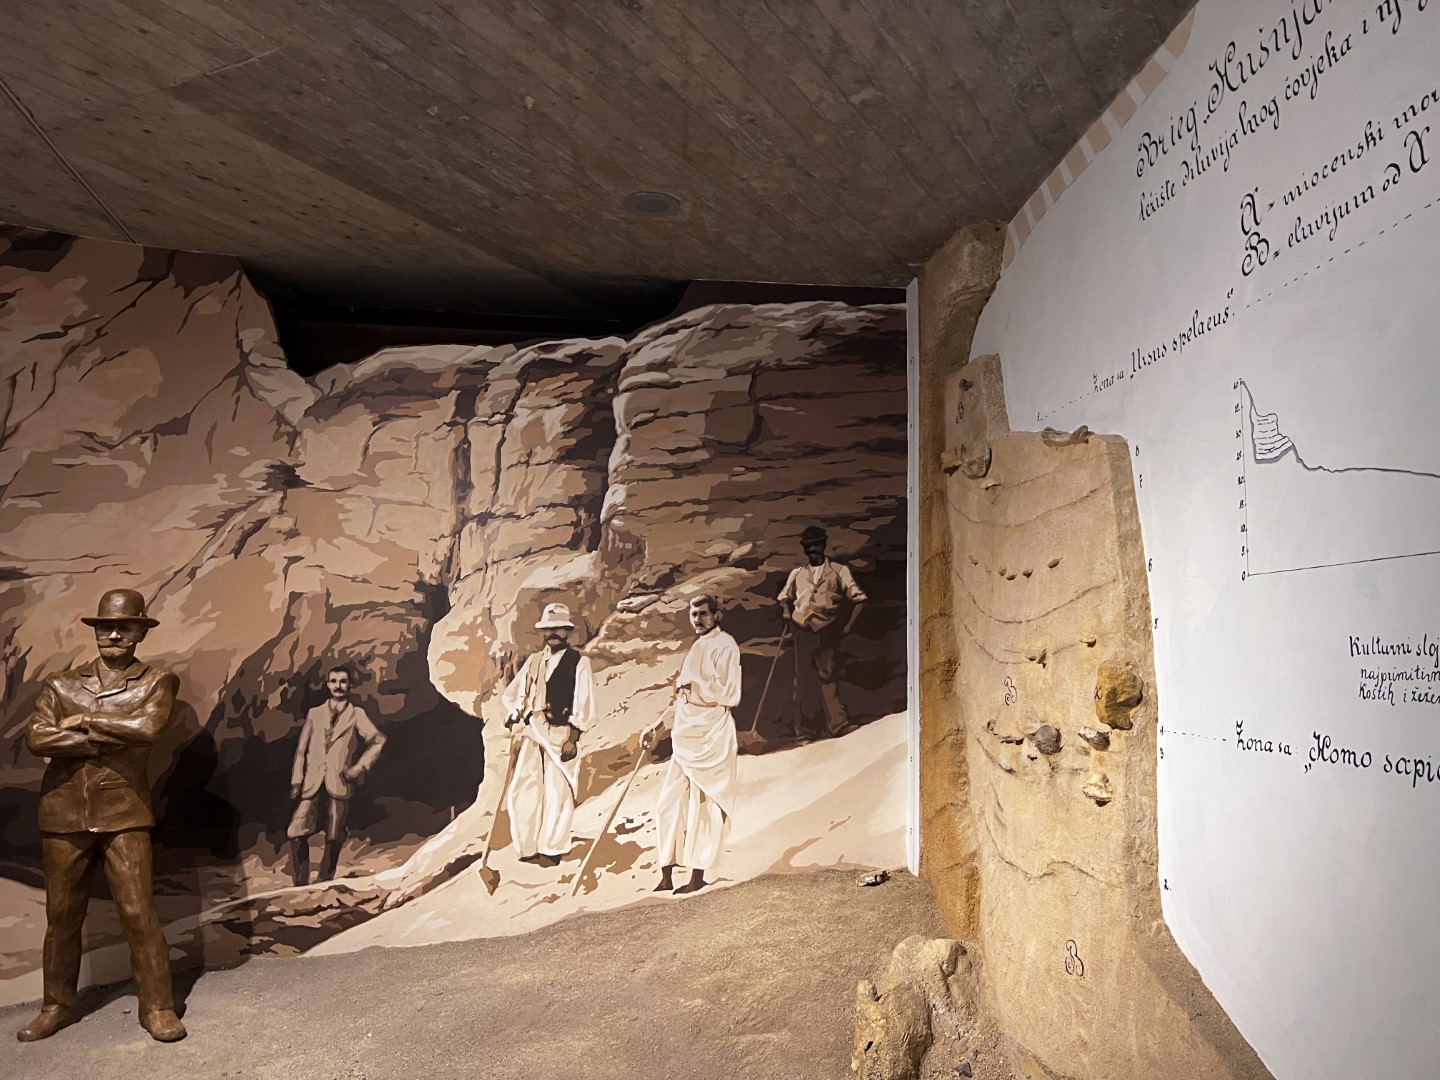 Brieg „Hušnja
ležište diluvijalnog čovjeka i nje
A = miocenski mor
B = eluvijum od A
Zona sa: „Ursus spelaeus“.
8
7
6
5
4
3
2.
B
B
B
Kulturni sloj
najprimitivn
kostih i žežen
Zona sa: „Homo sapie